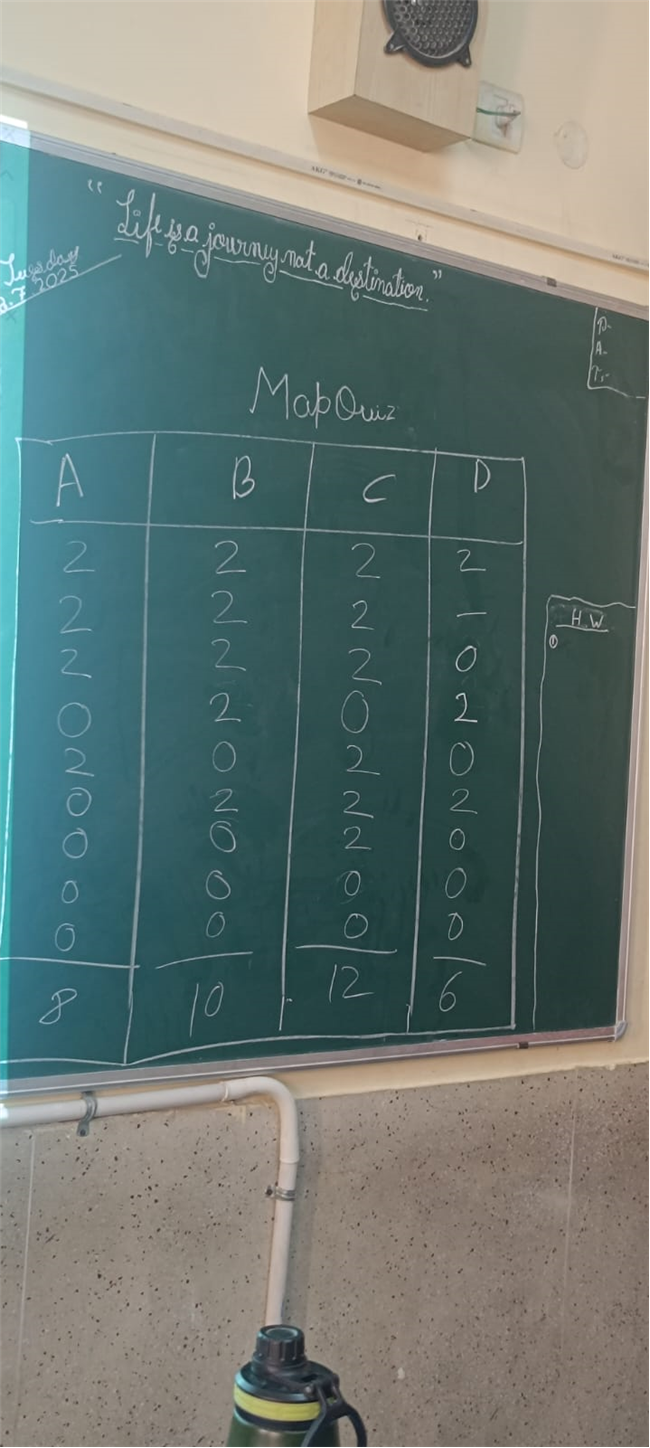 “Life is a journey not a destination.”
Tuesday
.7.2025
P-
A-
T:-
Map Quiz
A B C D
2 2 2 2
2 2 2 –
2 2 2 0
0 2 0 2
2 0 2 0
0 2 2 2
0 0 2 0
0 0 0 0
0 0 0 0
8 10 12 6
H.W
①